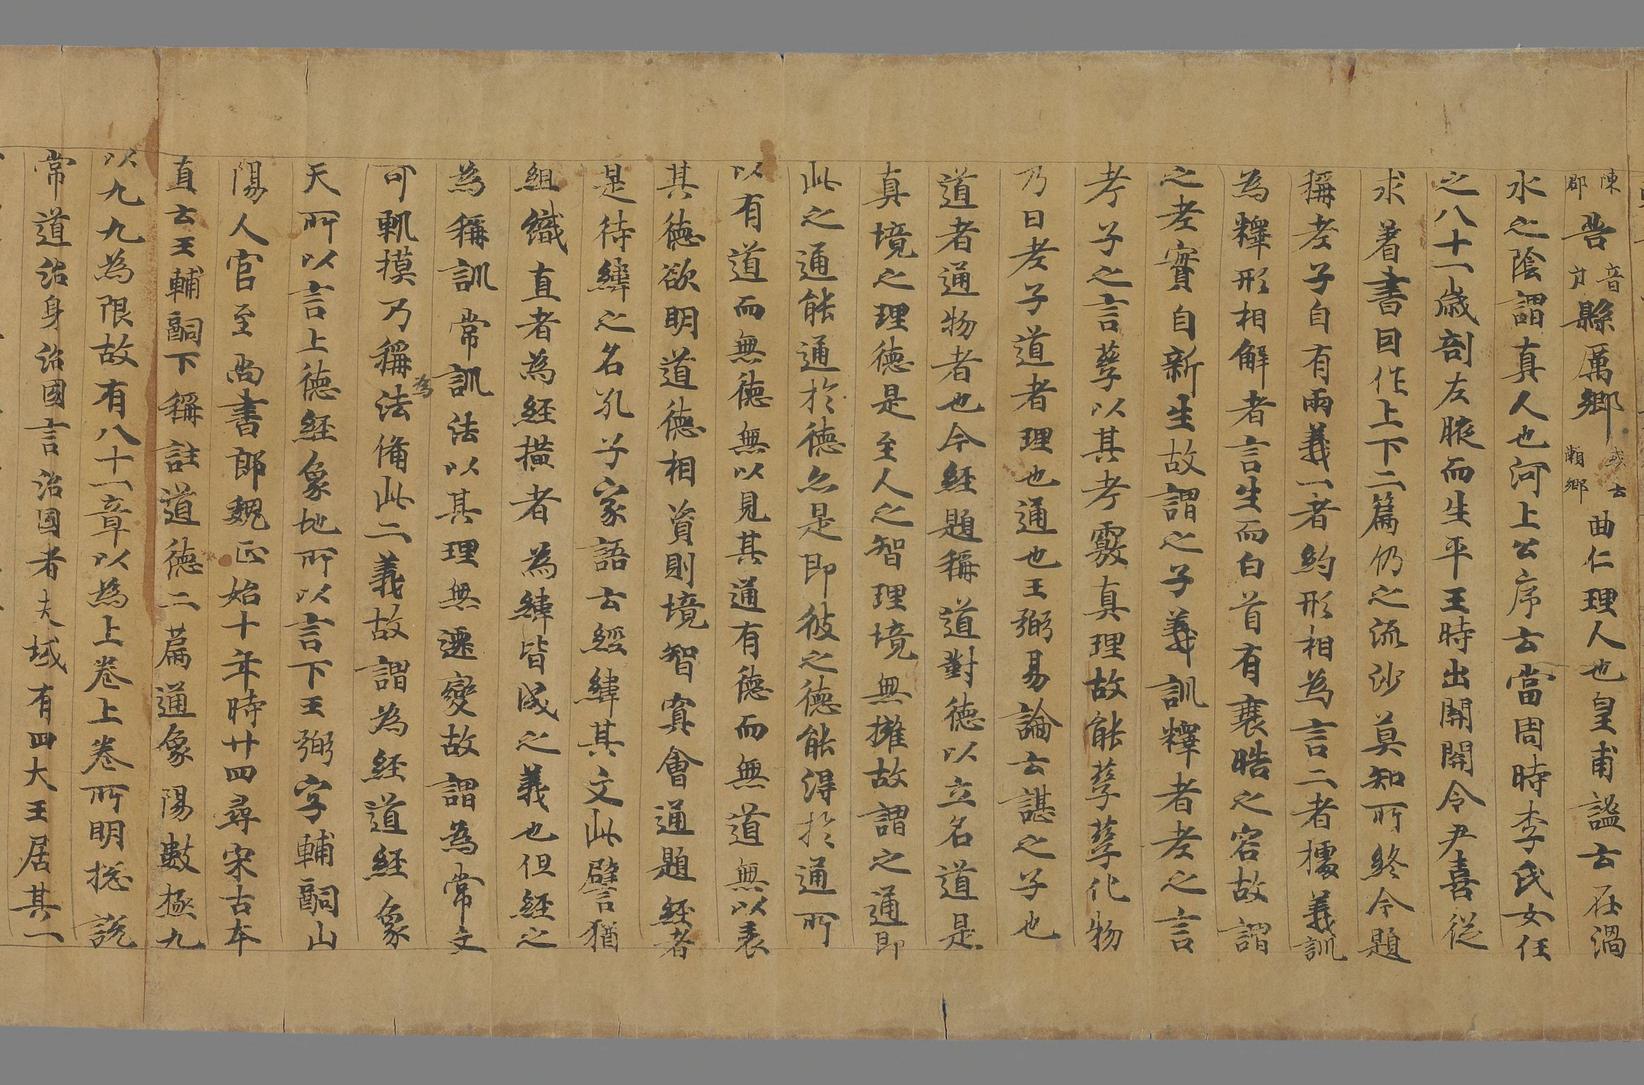 陳郡苦音戶縣厲鄉或云瀬鄉曲仁理人也皇甫謐云在渦
水之陰謂真人也河上公序云當周時李氏女任
之八十一歲剖左腋而生平王時出開開令尹喜從
求著書曰作上下二篇仍之流沙莫知所終今題
稱老子自有兩義一者約形相為言二者據義訓
為釋形相解者言生而白首有襄晧之容故謂
之老實自新生故謂之子義訓釋者老之言
考子之言孳以其考覈真理故能孳孳化物
乃曰老子道者理也通也王弼易論云諶之子也
道者通物者也今經題稱道對德以立名道是
真境之理德是至人之智理境無擁故謂之通即
此之通能通於德亦是即彼之德能得於通所
以有道而無德無以見其通有德而無道無以表
其德欲明道德相資則境智冥會通題經者
是待緯之名孔子家語云經緯其文此譬猶
組織直者為經橫者為緯皆成之義也但經之
為稱訓常訓法以其理無遷變故謂為常文
可軌摸乃稱為法備此二義故謂為經道經象
天所以言上德經象地所以言下王弼字輔嗣山
陽人官至尚書郎魏正始十年時廿四尋宋古本
直云王輔嗣下稱註道德二篇通象陽數極九
以九九為限故有八十一章以為上卷上卷所明摠說
常道治身治國言治國者夫域有四大王居其一